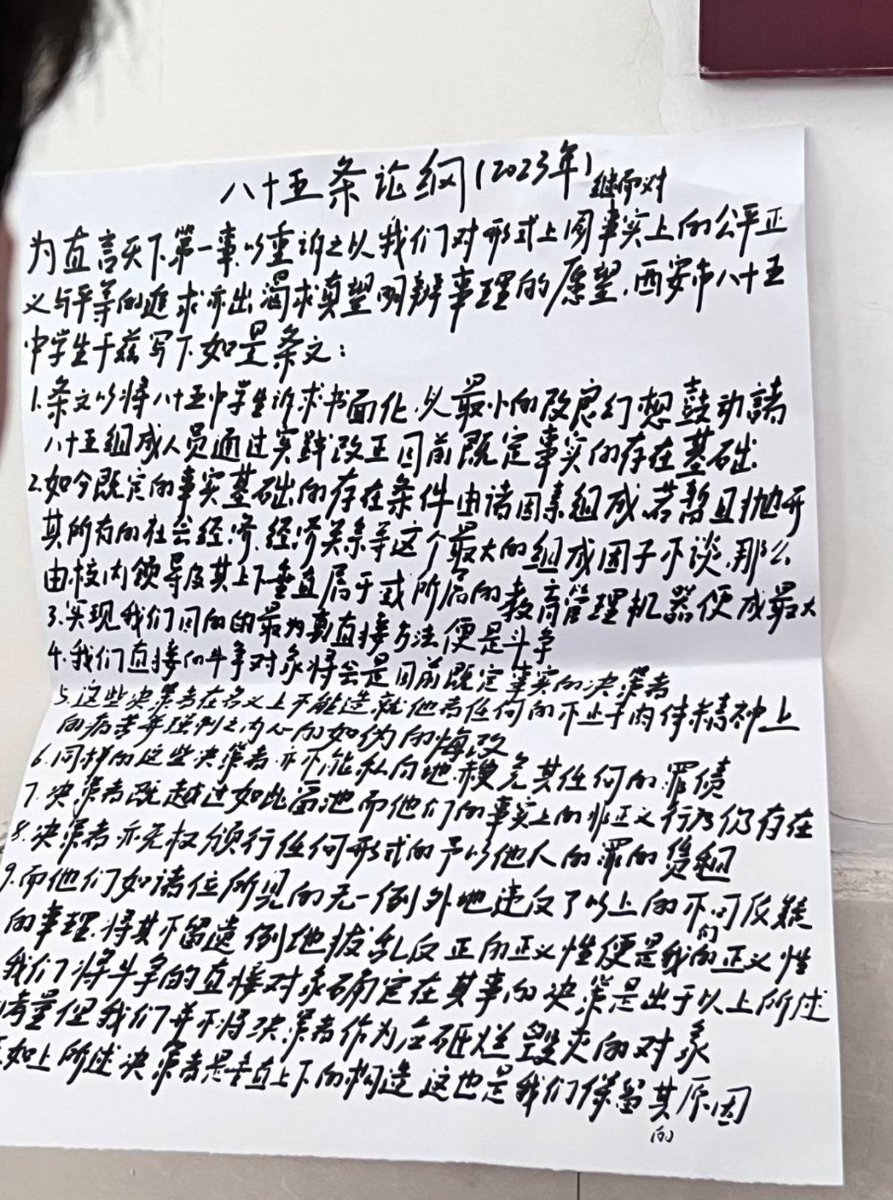 八十五条论纲(2023年)继而对
为直言天下第一事,以重诉之以我们对形式上同事实上的公平正
义与平等的追求亦出渴求真望明辨事理的愿望,西安市八十五
中学生于兹写下如是条文:
1.条文以将八十五中学生诉求书面化,以最小的改良幻想鼓动諸
八十五组成人员通过实践改正目前既定事实的存在基础.
2.如今既定的事实基础的存在条件由诸因素组成,若暂且抛开
其所有的社会经济、经济关系等这个最大的组成因子不谈,那么
由校内领导及其上下垂直属于或所属的教育管理机器便成最大
3.实现我们目的的最为真直接方法便是斗争
4.我们直接的斗争对象将会是目前既定事实的决策者
5.这些决策者在名义上不能造就他者任何的不止于肉体精神上
的病苦并强制之内心的如伪的悔改
6.同样的这些决策者亦不能私自地赦免其任何的罪债
7.决策者既越过如此雷池而他们的事实上的非正义行为仍存在
8.决策者亦无权颁行任何形式的予以他人的罪的赁
9.而他们如诸位所见的无一例外地违反了以上的不可反疑
的事理,将其不留遗例地拨乱反正的正义性便是我们的正义性
我们将斗争的直接对象确定在其事的决策是出于以上所述
考量但我们并不将决策者作为应砸烂毁灭的对象
如上所述决策者是垂直上下的构造,这也是我们保留其的原因